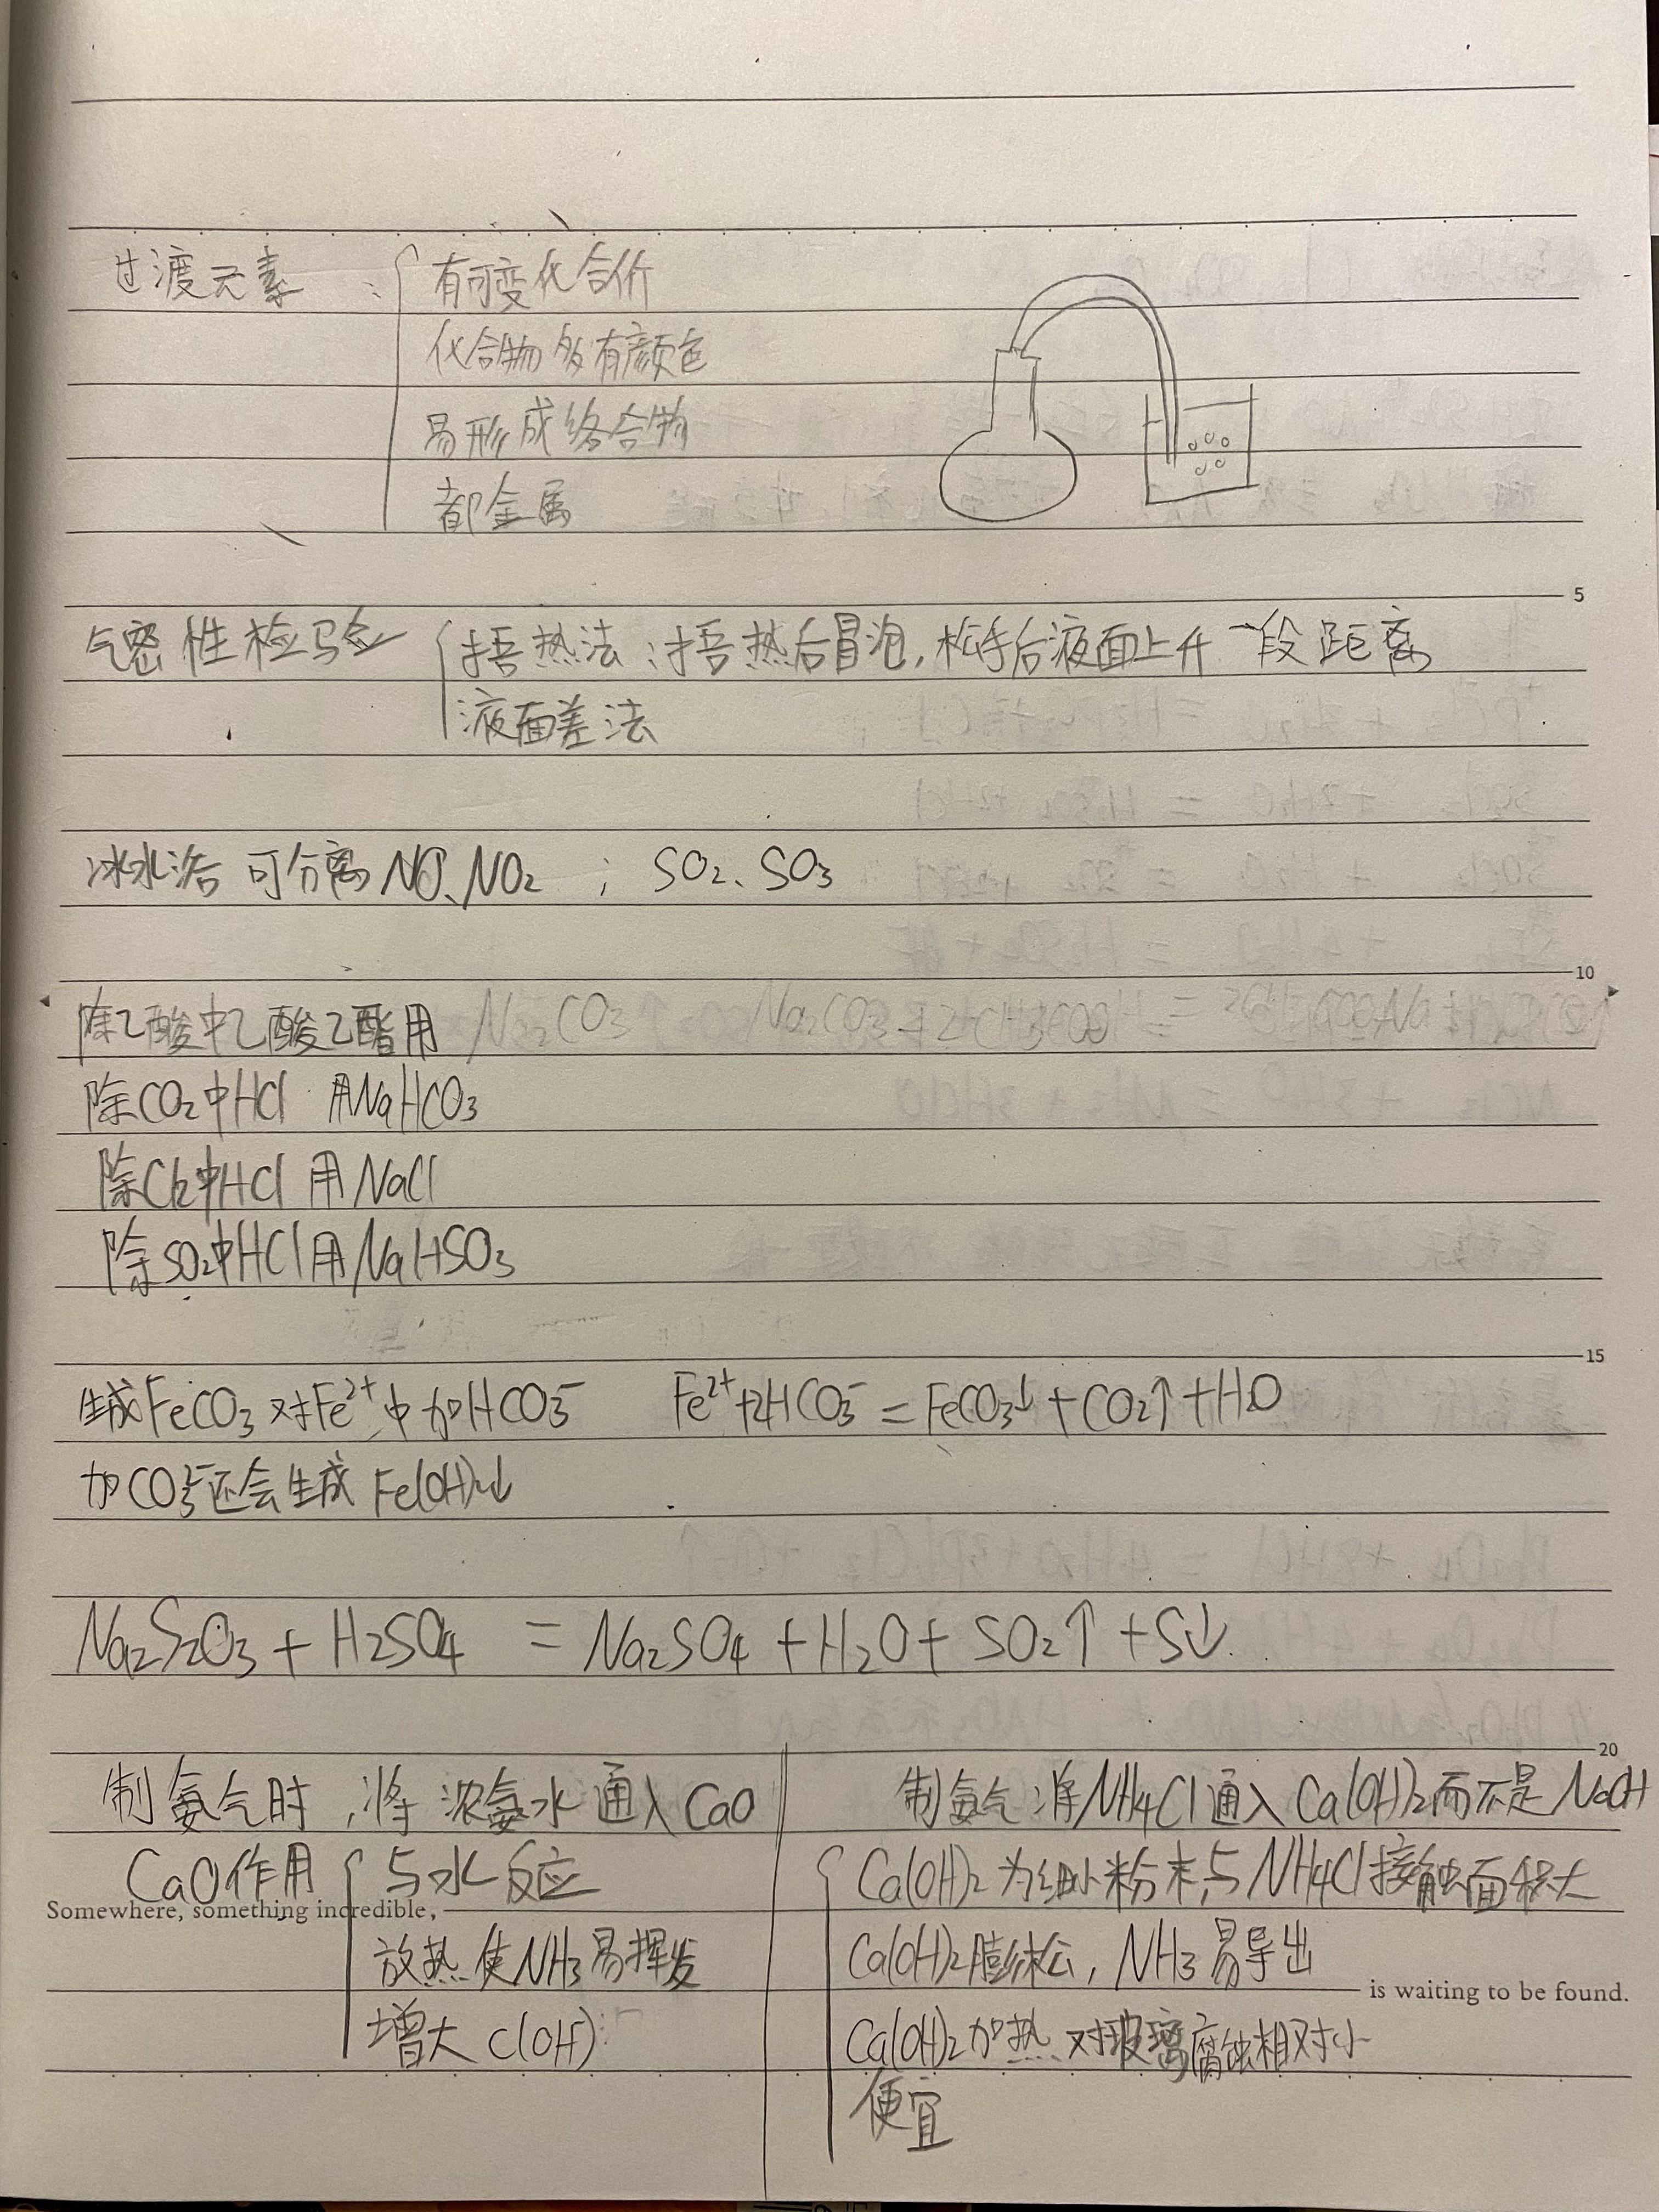 过渡元素：
有可变化合价
化合物多有颜色
易形成络合物
都金属
5
气密性检验 捂热法：捂热后冒泡，松手后液面上升一段距离
液面差法
冰水浴 可分离NO、NO₂ ； SO₂、SO₃
10
除乙酸中乙酸乙酯用 Na₂CO₃
除CO₂中HCl 用NaHCO₃
除Cl₂中HCl 用NaCl
除SO₂中HCl用NaHSO₃
15
生成FeCO₃对Fe²⁺中加HCO₃⁻ Fe²⁺+2HCO₃⁻=FeCO₃↓+CO₂↑+H₂O
加CO₃²⁻还会生成 Fe(OH)₂↓
Na₂S₂O₃+H₂SO₄ = Na₂SO₄+H₂O+SO₂↑+S↓
20
制氨气时，将浓氨水通入CaO
CaO作用
与水反应
放热使NH₃易挥发
增大c(OH⁻)
制氨气将NH₄Cl通入Ca(OH)₂而不是NaOH
Ca(OH)₂为细小粉末，与NH₄Cl接触面积大
Ca(OH)₂膨松，NH₃易导出
Ca(OH)₂加热对玻璃腐蚀相对小
便宜
Somewhere, something incredible,
is waiting to be found.